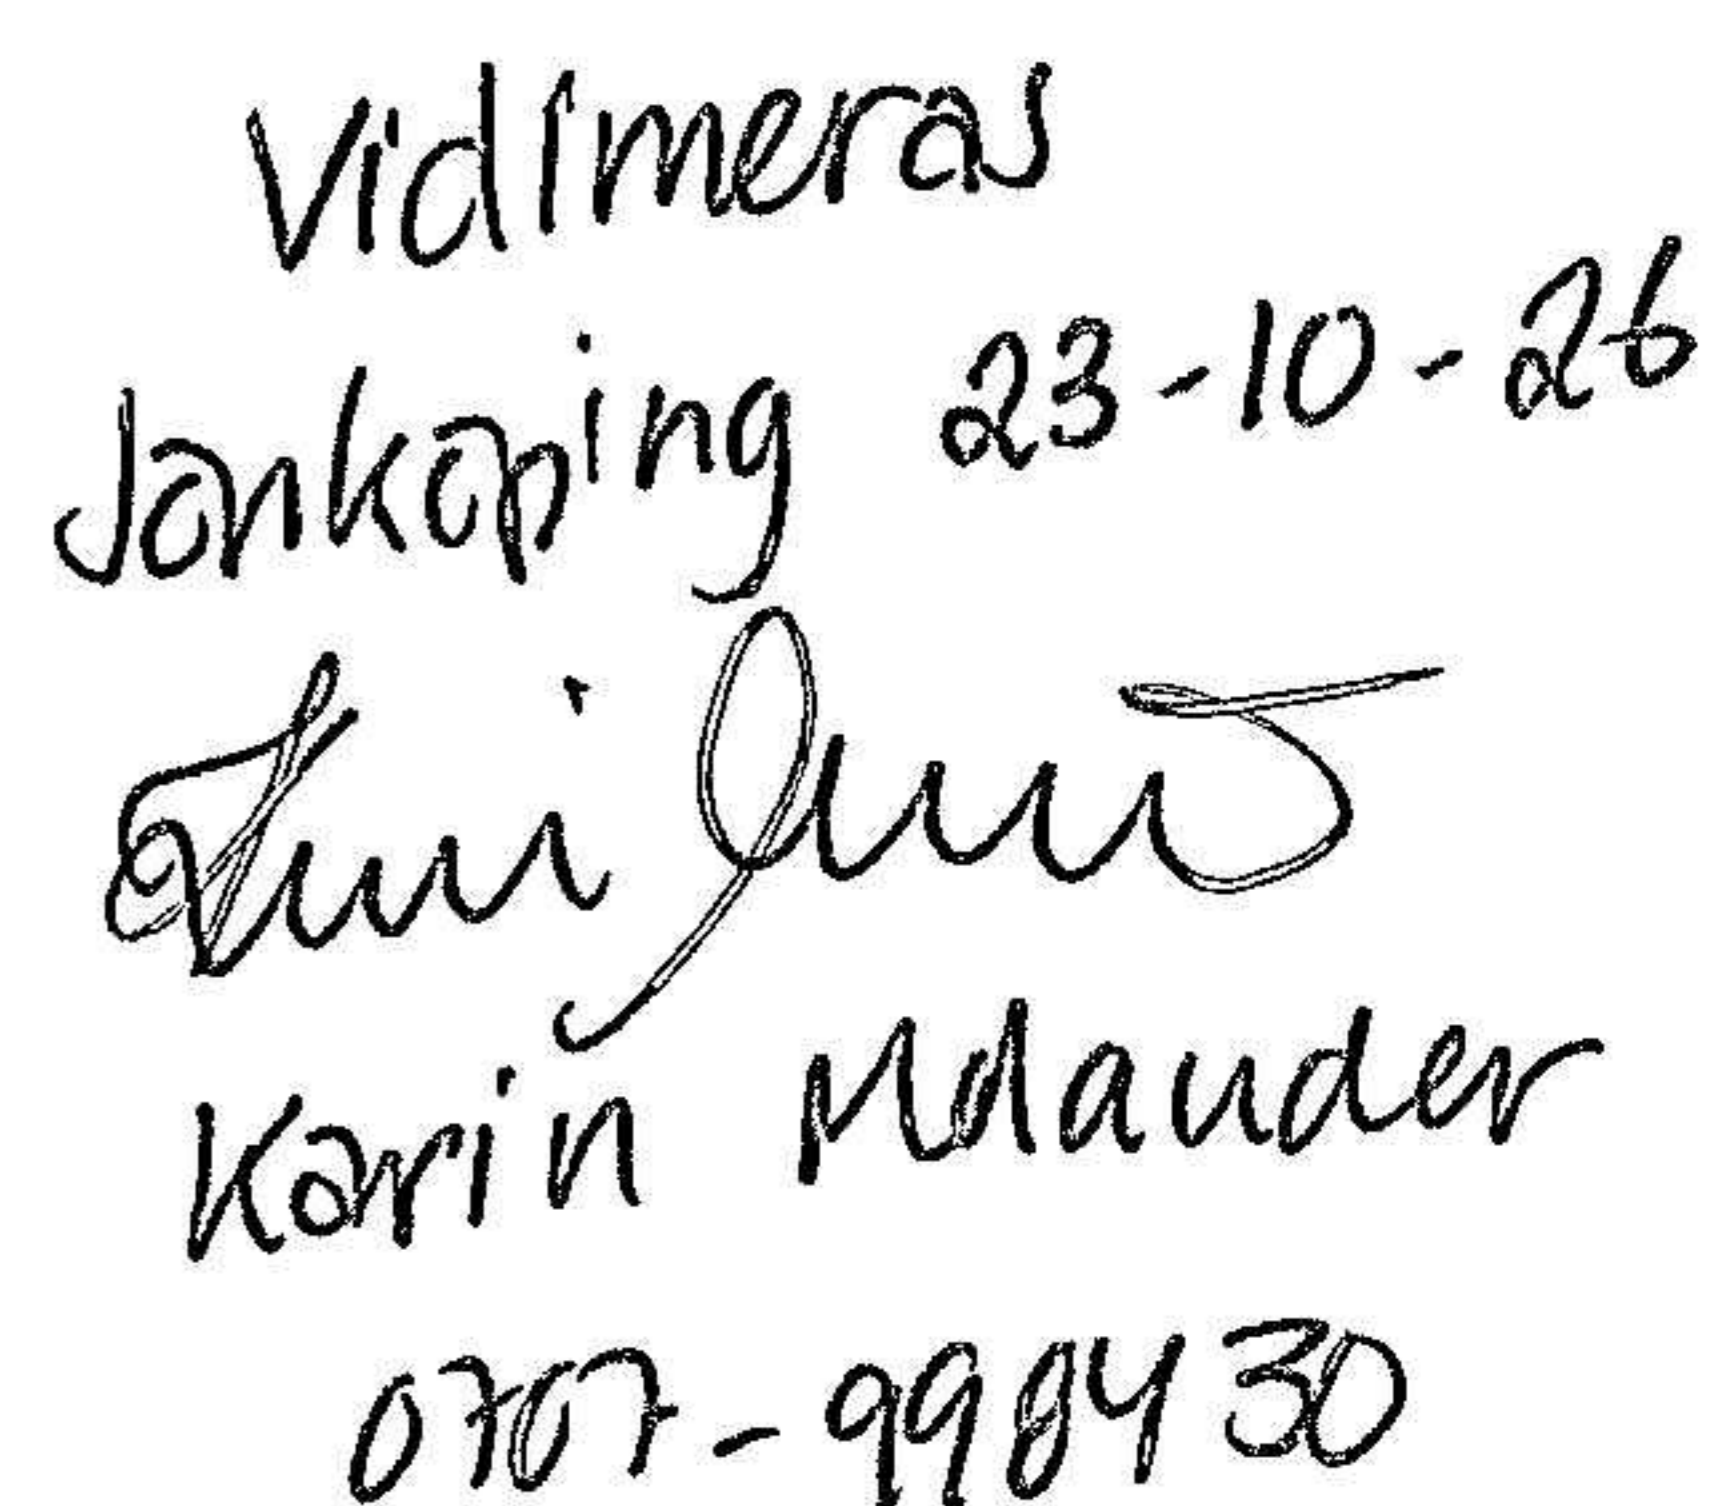 Vidimeras
Jönköping 23-10-26
Karin Melander
0707-998430